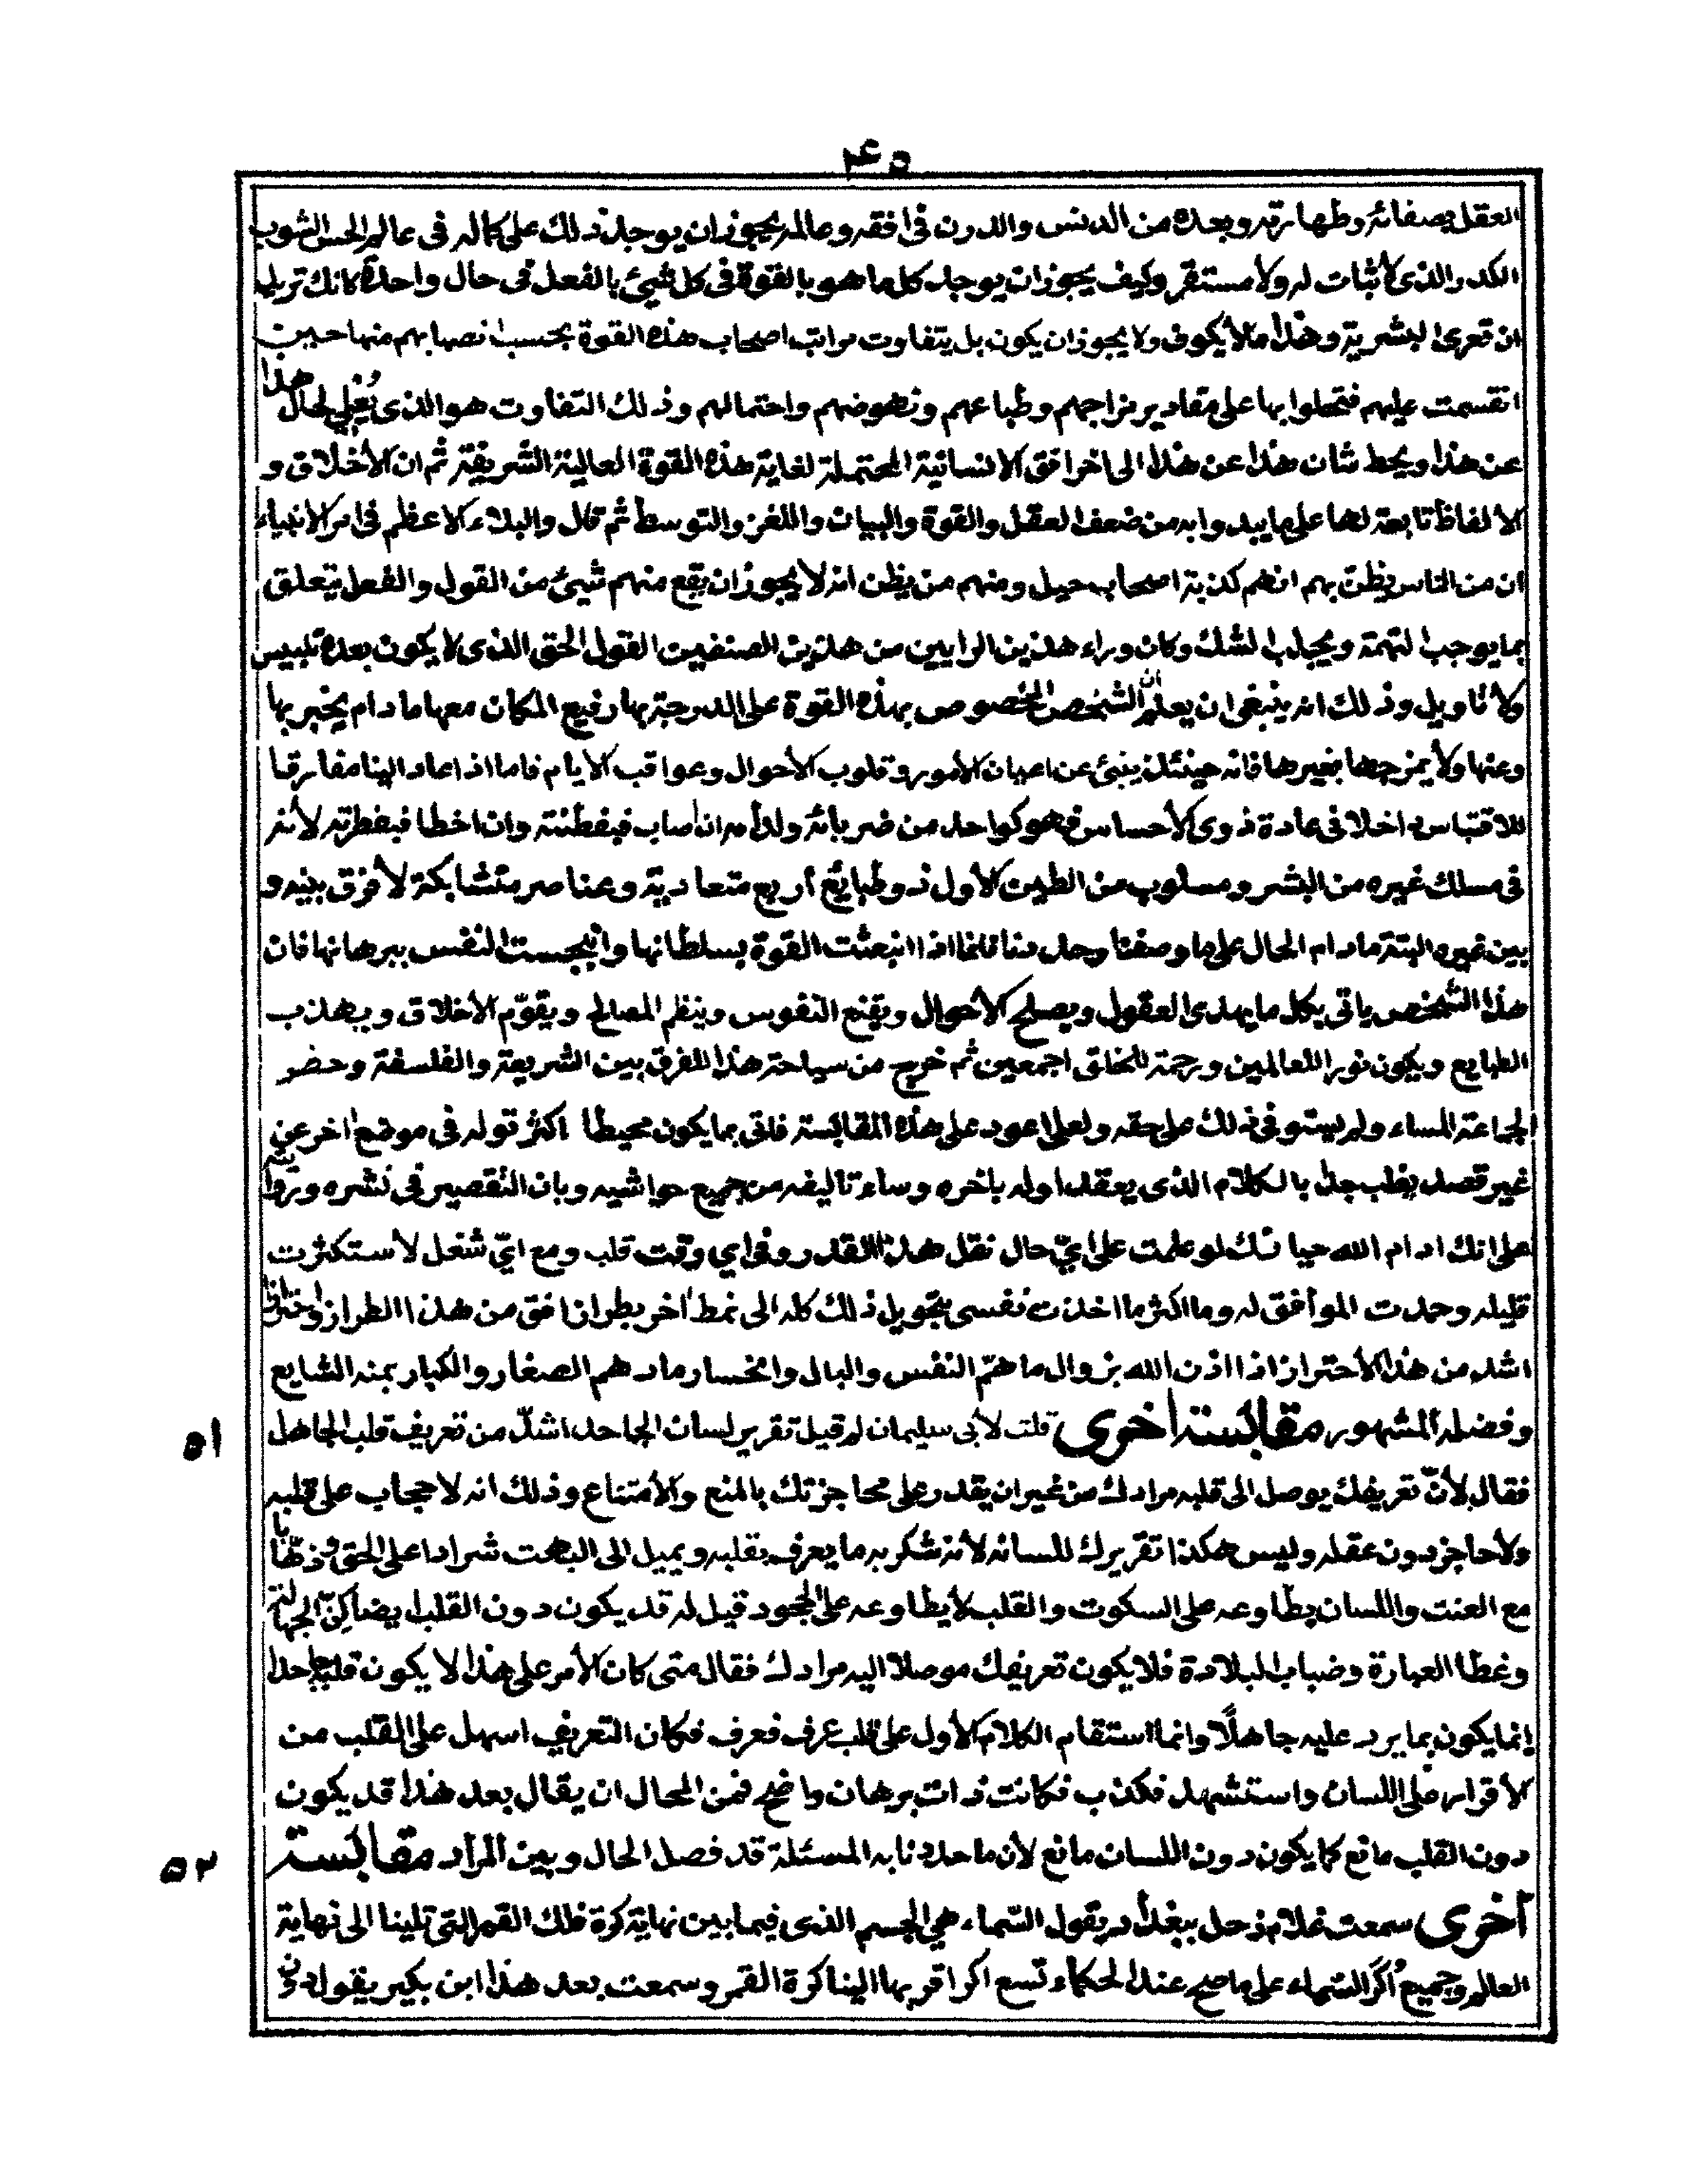 ٤٥
العقل بصفائه وطهارته وبعده من الدنس والدرن فى افقه وعالمه يجوز ان يوجد ذلك على كماله فى عالم الحس الشوب
الكدر والذى لا ثبات له ولا مستقر وكيف يجوز ان يوجد كل ما هو بالقوة فى كل شيئ بالفعل فى حال واحدة كانك تريد
ان تعرى البشرية وهذا ما لا يكون ولا يجوز ان يكون بل يتفاوت مراتب اصحاب هذه القوة بحسب انصبائهم منها حين
انقسمت عليهم فتحلوا بها على مقادير مزاجهم وطباعهم ونهوضهم واحتمالهم وذلك التفاوت هو الذى يُعْلِى لحال هذا
عن هذا ويحط شان هذا عن هذا الى اخر افق الانسانية المحتملة لغاية هذه القوة العالية الشريفة ثم ان الأخلاق و
الألفاظ تابعة لها على ما يبدوا به من ضعف العقل والقوة والبيان واللغز والتوسط ثم قال والبلاء الاعظم فى امر الأنبياء
ان من الناس يظن بهم انهم كذبة اصحاب حيل ومنهم من يظن انه لا يجوز ان يقع منهم شيئ من القول والفعل يتعلق
بما يوجب التهمة ويجلب الشك وكان وراء هذين الرايين من هذين الصنفين القول الحق الذى لا يكون بعده تلبيس
ولا تاويل وذلك انه ينبغى ان يعلم ان الشخص المخصوص بهذه القوة على الدرجة بها رفيع المكان معها ما دام يخبر بها
وعنها ولا يمزجها بغيرها فانه حينئذ ينبئ عن اعيان الأمور وقلوب الأحوال وعواقب الايام فاما اذا عاد الينا مفارقا
للاقتباس داخلا فى عادة ذوى الأحساس فهو كواحد من ضربائه ولداته ان اصاب فبفطنته وان اخطا فبفطرته لأنه
فى مسلك غيره من البشر ومسلوب من الطين الأول ذو طبايع أربع متعادية وعناصر متشابكة لا فرق بينه و
بين غيره البتة ما دام الحال على ما وصفنا وحددنا فاما اذا انبعثت القوة بسلطانها وانبجست النفس ببرهانها فان
هذا الشخص ياتى بكل ما يهدى العقول ويصلح الأحوال ويقنع النفوس وينظم المصالح ويقوّم الأخلاق ويهذب
الطبايع ويكون نورا للعالمين ورحمة للخلق اجمعين ثم خرج من سياحة هذا الفرق بين الشريعة والفلسفة وحضر
الجماعة المساء ولم يستوفى ذلك على حقه ولعلى اعود على هذه المقابسة فاتى بما يكون محيطا اكثر قوله فى موضع اخر عن
غير قصد يطب جدا بالكلام الذى يعقد اوله باخره وساء تاليفه من جميع حواشيه وبان التقصير فى نشره
على انك ادام الله حياتك لو علمت على اىّ حال نقل هذا القدر وفى اي وقت قلب ومع ايّ شغل لأستكثرت
قليله وحمدت الموافق له وما اكثر ما اخذت نفسى بتحويل ذلك كله الى نمط اخر بطراز افق من هذا الطراز واحتراز
اشد من هذا الأحتراز اذا اذن الله بزوال ما همّ النفس والبال وانحسار ما دهم الصغار والكبار بمنه الشايع
وفضله المشهور مقابسة اخرى قلت لأبى سليمان لم قيل تقرير لسان الجاحد اشدّ من تعريف قلب الجاهل
٥١
فقال لأنّ تعريفك يوصل الى قلبه مرادك من غير ان يقدر على محاجزتك بالمنع والأمتناع وذلك انه لا حجاب على قلبه
ولا حاجز دون عقله وليس هكذا تقريرك للسانه لأنه شكر به ما يعرف بقلبه ويميل الى البهت شرادا على الحق وذهابا
مع العنت واللسان يطاوعه على السكوت والقلب لا يطاوعه على الجحود قيل له قد يكون دون القلب ايضا كِنّ الجهالة
وغطا العبارة وضباب البلادة فلا يكون تعريفك موصلا اليه مرادك فقال متى كان الأمر على هذا لا يكون قلبا جاحدا
إنما يكون بما يرد عليه جاهلًا وانما استقام الكلام الأول على قلب عرف فعرف فكان التعريف اسهل على القلب من
الأقرار على اللسان واستشهد فكذب فكانت ذات برهان واضح فمن المحال ان يقال بعد هذا قد يكون
دون القلب مانع كما يكون دون اللسان مانع لأن ما حددنا به المسئلة قد فصل الحال وبين المراد مقابسة
٥٢
أخرى سمعت غلام زحل ببغداد يقول السّماء هي الجسم الذى فيما بين نهاية كرة فلك القمر التى تلينا الى نهاية
العالم وجميع أكَر السّماء على ما صح عند الحكماء تسع اكر اقربها الينا كرة القمر وسمعت بعد هذا ابن بكير يقول دون